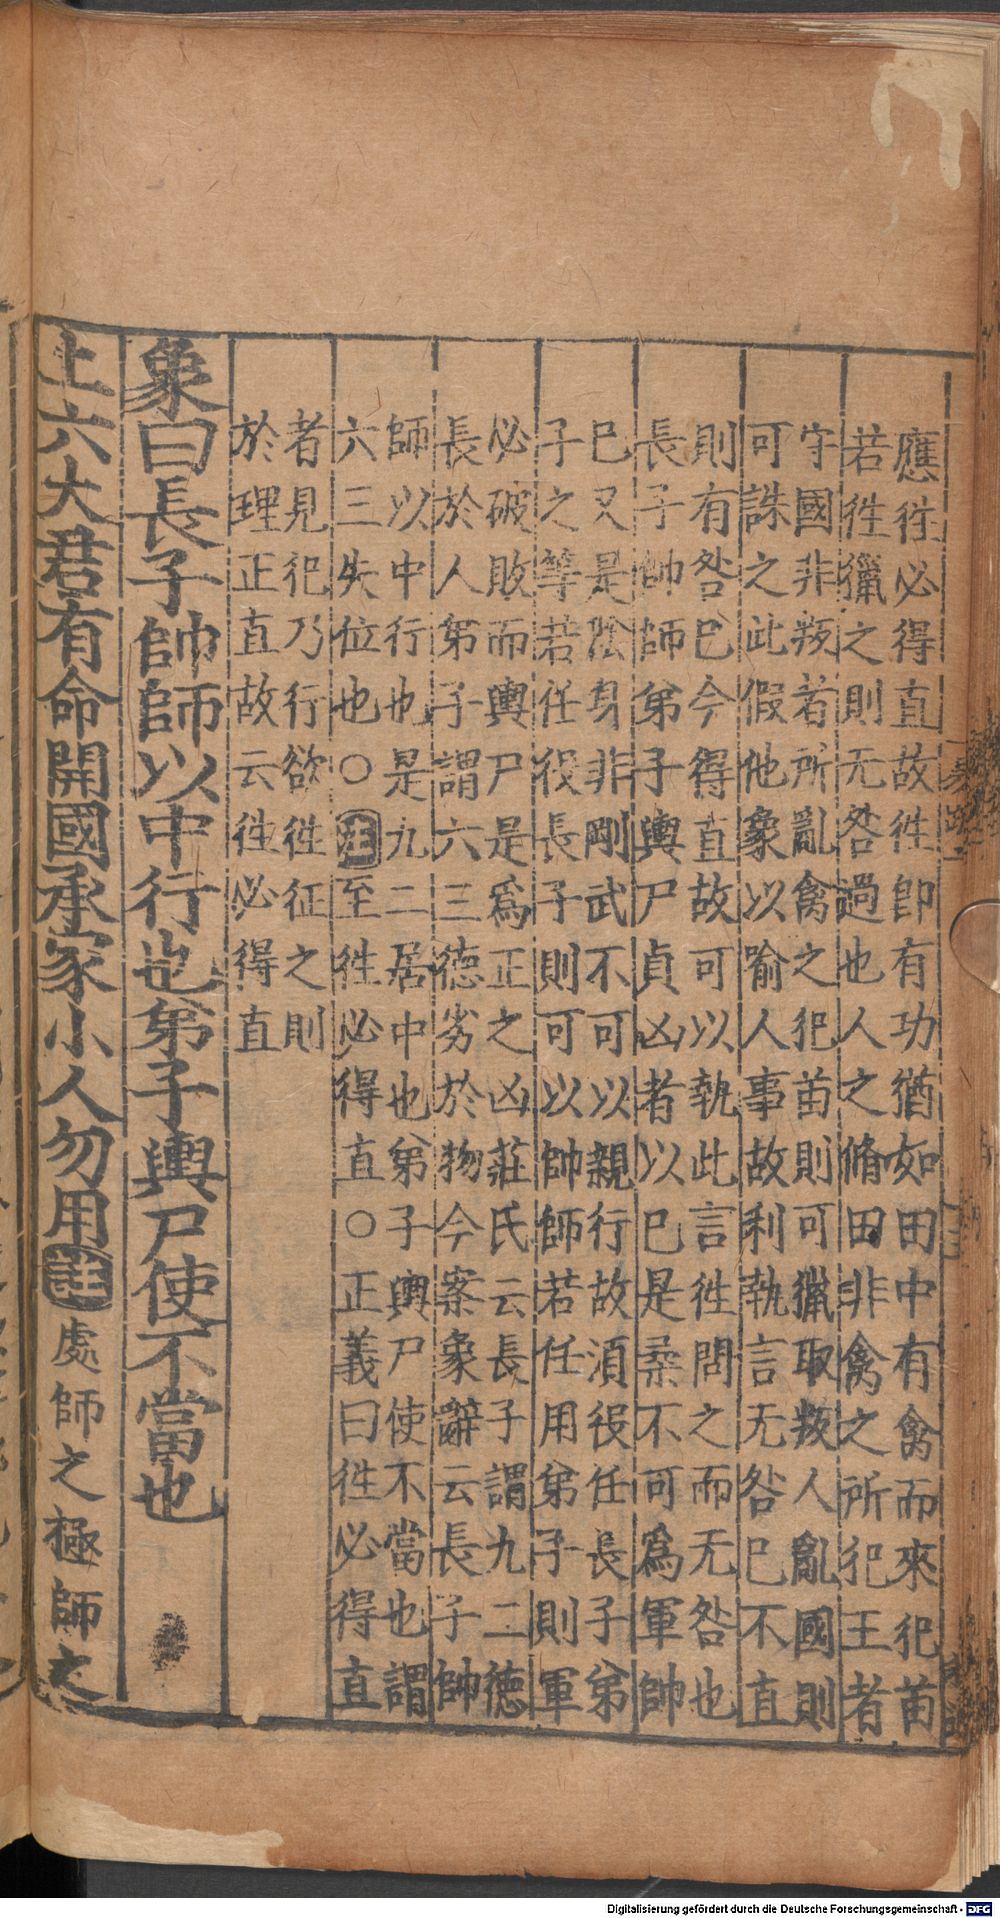 應徃必得直故徃即有功猶如田中有禽而來犯苗
若徃獵之則无咎過也人之脩田非禽之所犯王者
守國非叛若所亂禽之犯苗則可獵取叛人亂國則
可誅之此假他象以喻人事故利執言无咎巳不直
則有咎巳今得直故可以執此言徃問之而无咎也
長子帥師弟子輿尸貞凶者以巳是柔不可爲軍帥
巳又是隂身非剛武不可以親行故須役任長子弟
子之等若任役長子則可以帥師若任用弟子則軍
必破敗而輿尸是爲正之凶莊氏云長子謂九二德
長於人弟子謂六三德劣於物今案象辭云長子帥
師以中行也是九二居中也弟子輿尸使不當也謂
六三失位也〇注至徃必得直〇正義曰徃必得直
者見犯乃行欲徃征之則
於理正直故云徃必得直
象曰長子帥師以中行也弟子輿尸使不當也
上六大君有命開國承家小人勿用注處師之極師之
Digitalisierung gefördert durch die Deutsche Forschungsgemeinschaft - DFG